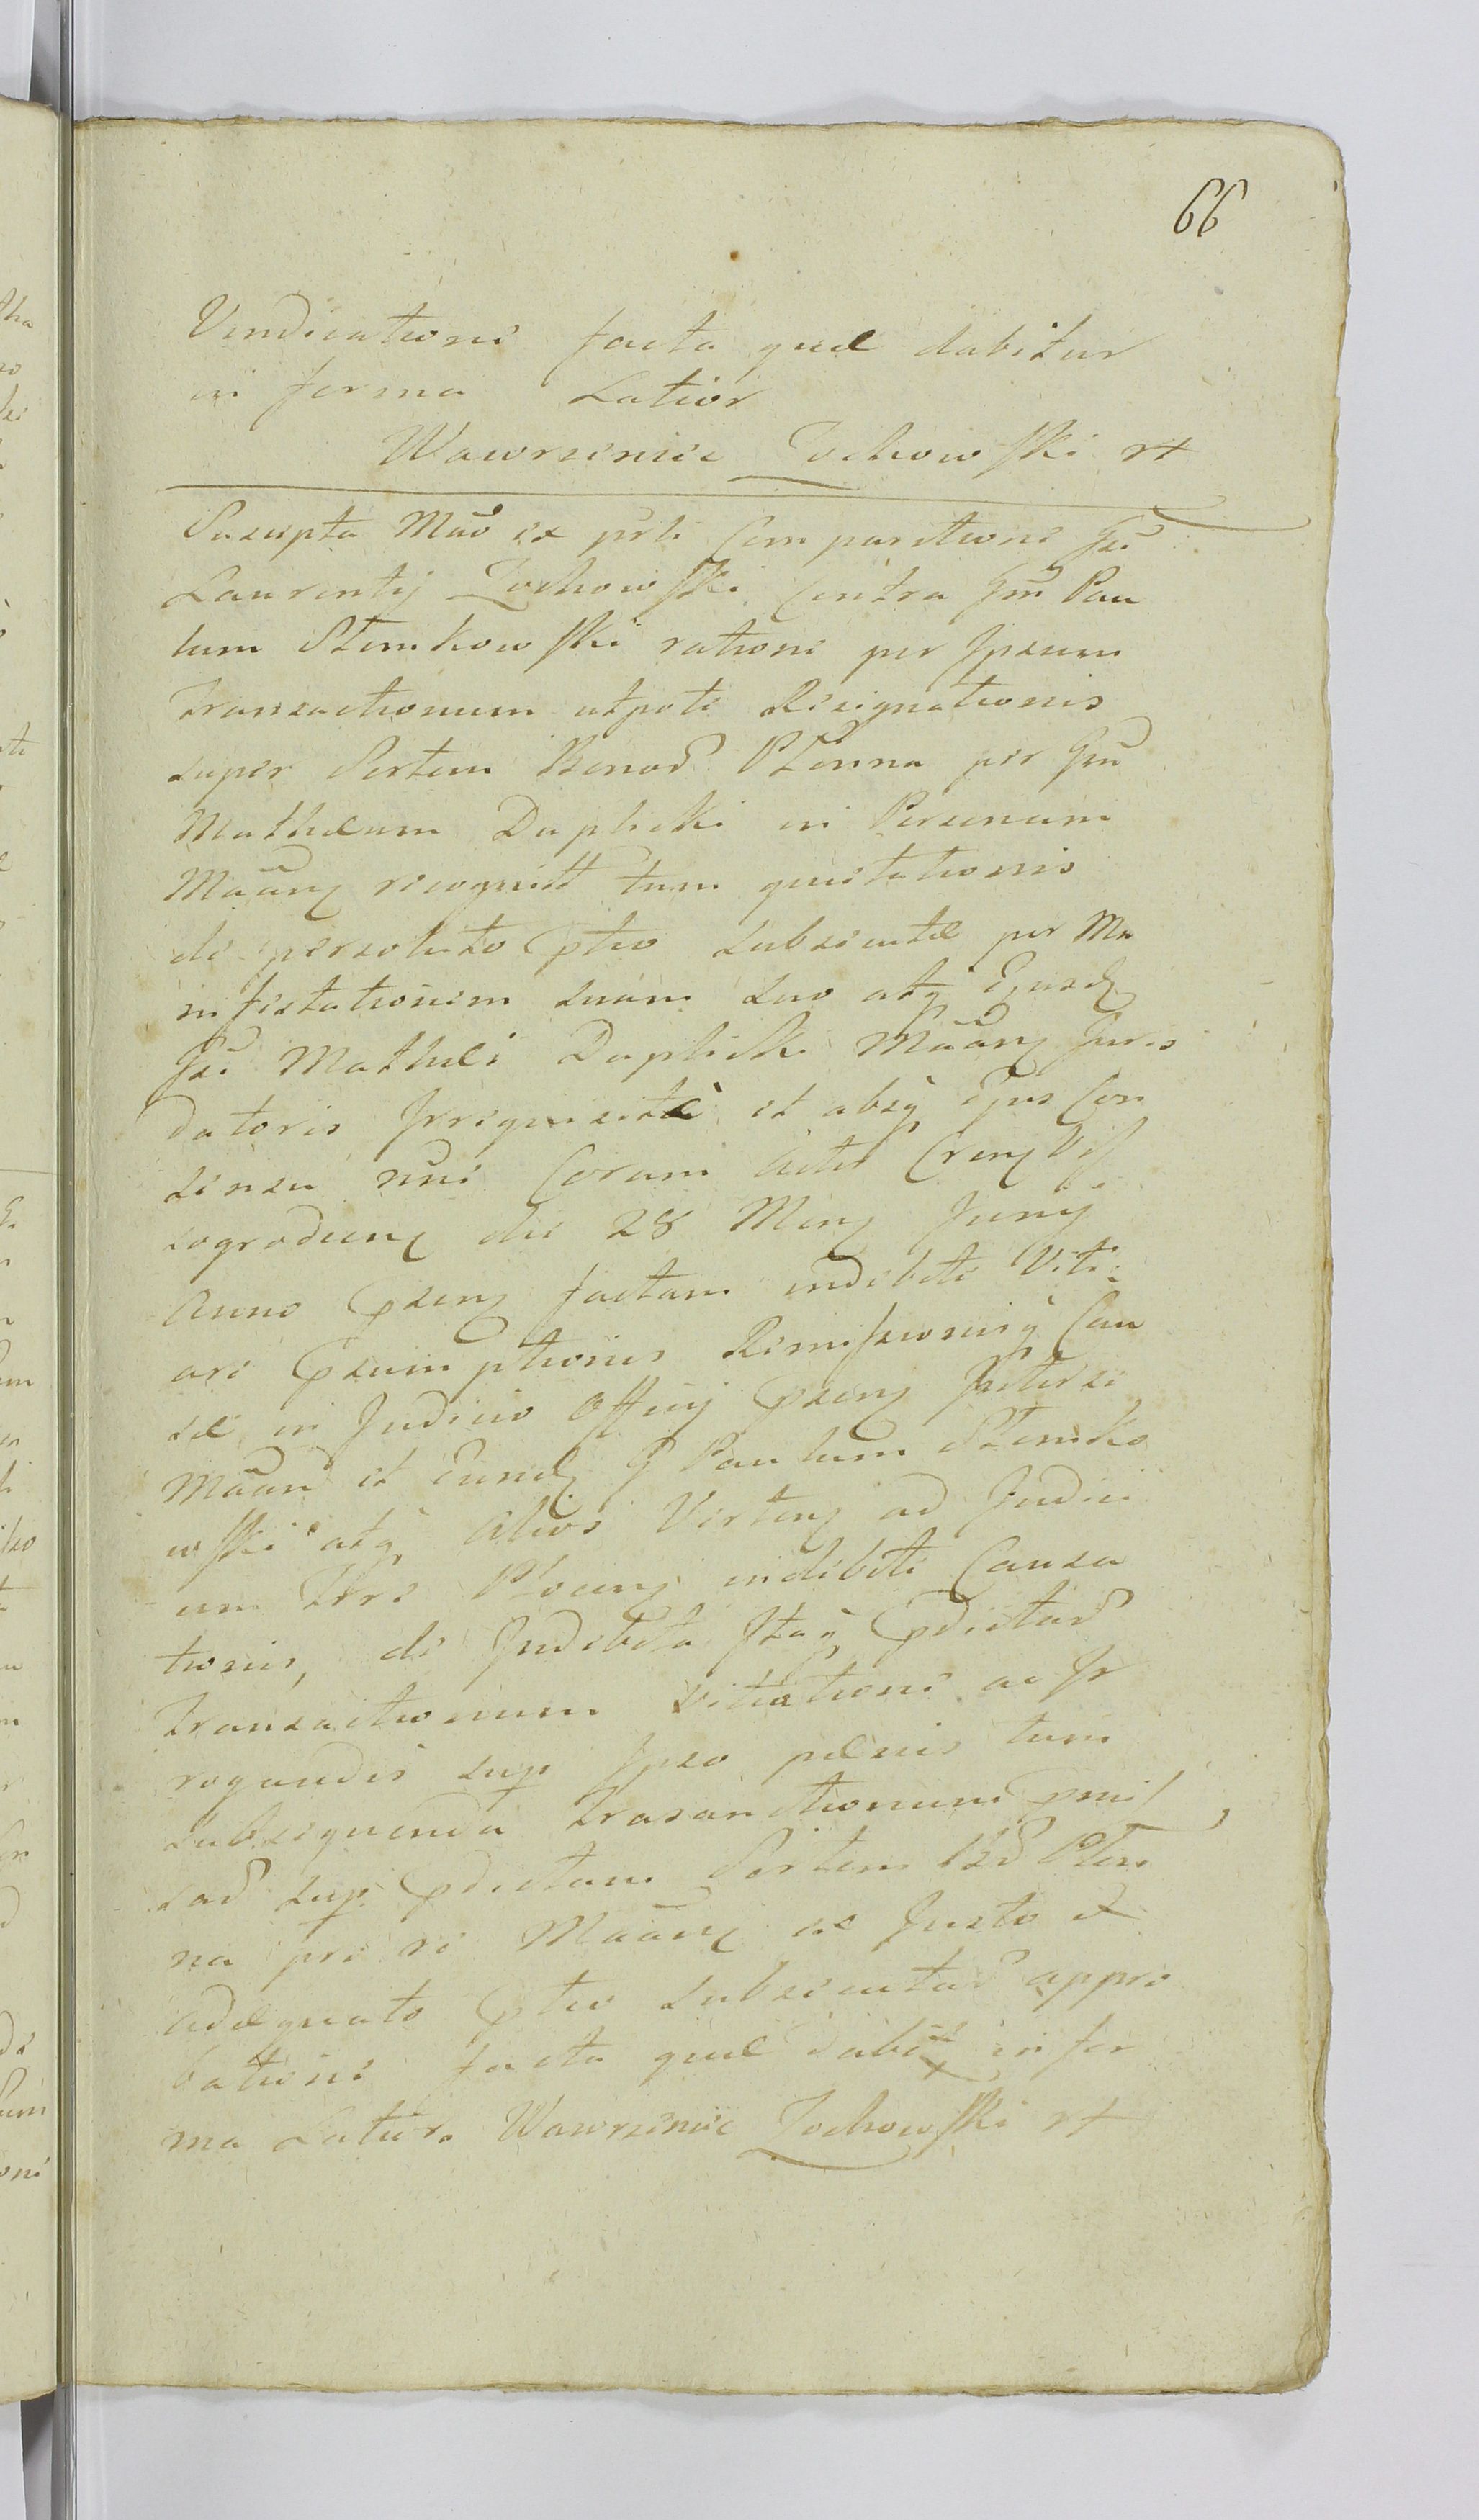 66
Vendicatione facta quæ dabitur
in forma Latior
Wawrzeniec Zochowski rt
Suscepta Mãõ ex prãti Comparitione Gsi
Laurentij Zochowski Contra Gm̃ Pau
lum Stemkowski ratione per Ipsum
Transactionum utpote Resignationis
super Sortem Bonoꝛ Ptenna per Gm̃
Mathæum Duplicki in Personam
Mãanꝫ recognitt tum quietationis
de persoluto ꝑtio subsecutæ per Ma
nifestationem suam suo atꝗ Ejusdꝫ
Gsi Mathæi Duplicki Mãanꝫ Juris
datoris Irrequisitæ et absꝗ Ejus Con
sensu nũi Coram Actis Crenꝫ Vis
sogrodienꝫ die 28 Menꝫ Junij
Anno ꝑsenꝫ factam indebite Viti
are ꝑsumptionis Remissionisꝗ Cau
sæ in Judicio Officij ꝑsenꝫ Interse
Mãan̄ et Eundꝫ G Paulum Stemko
wski atꝗ Alios Vertenꝫ ad Judici
um Trrs Plocenꝫ indebite Causa
tionis, de Indebita Itaꝗ ꝑdictaꝛ
Transactionum vitiatione ac Ir
rogandis sup Ipso pænis tum
subsequenda Trasanctionum ꝑmis
saꝛ sup ꝑdictam Sortem Bꝛ Pten
na pro re Mãanꝫ ex Justo et
adæquato ꝑtio subsecutaꝛ appro
batione facta quæ dabit in for
ma Latior. Wawrzeniec Zochowski rt